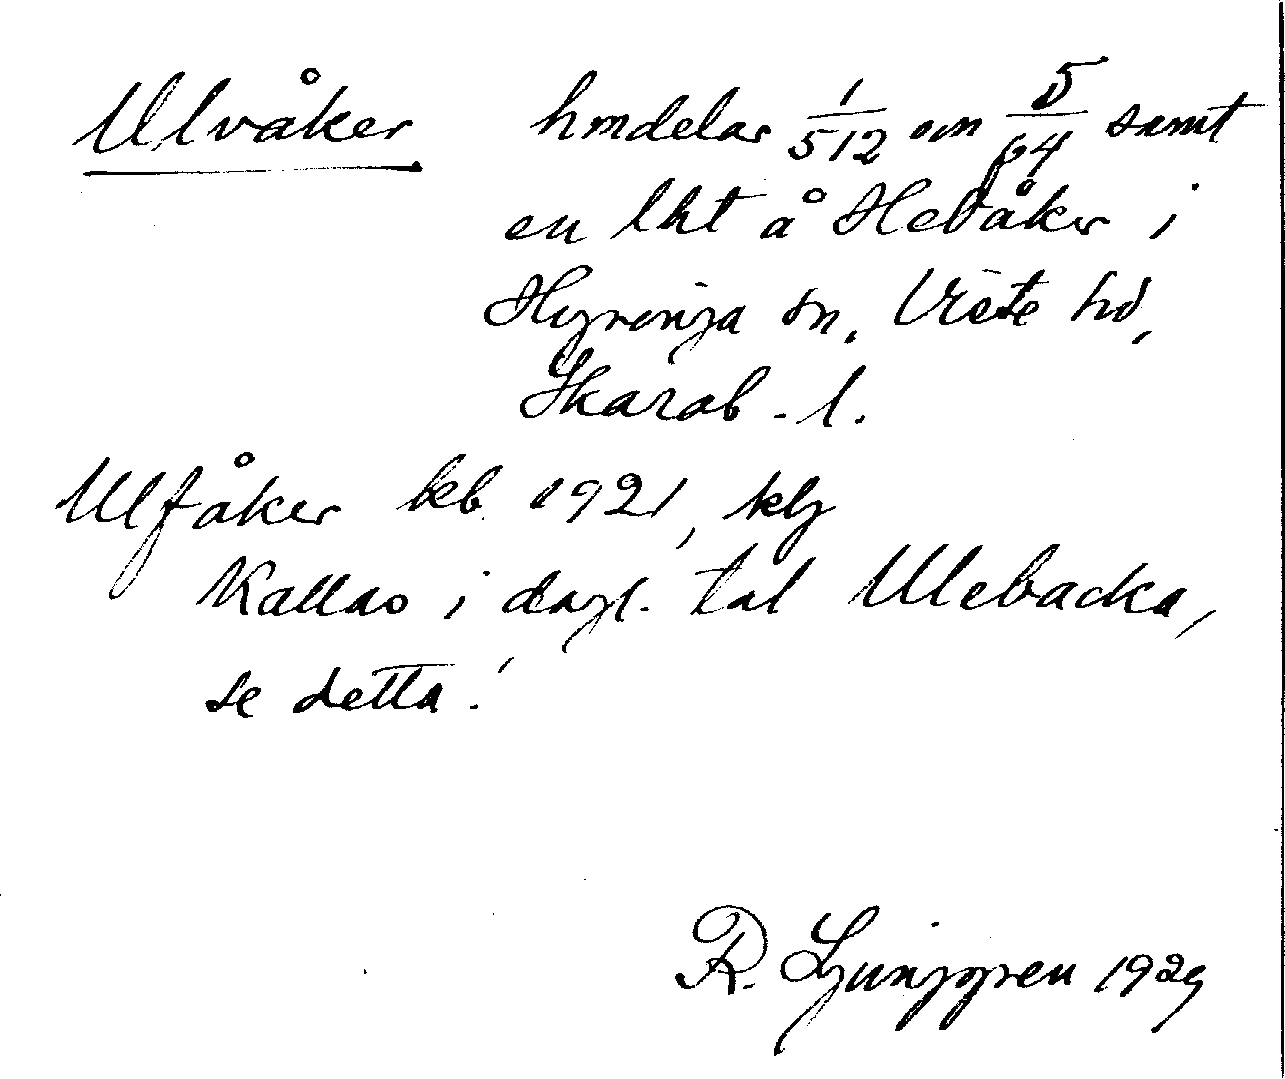 Ulvåker hmdelar 1/512 om 5/64 samt
en lht å Hebåker i
Hyringa sn, Viste hd,
Skarab. l.
Ulfåker kb 1921, klg
Kallas i dagl. tal Ulebacka,
se detta!
R. Ljunggren 1929